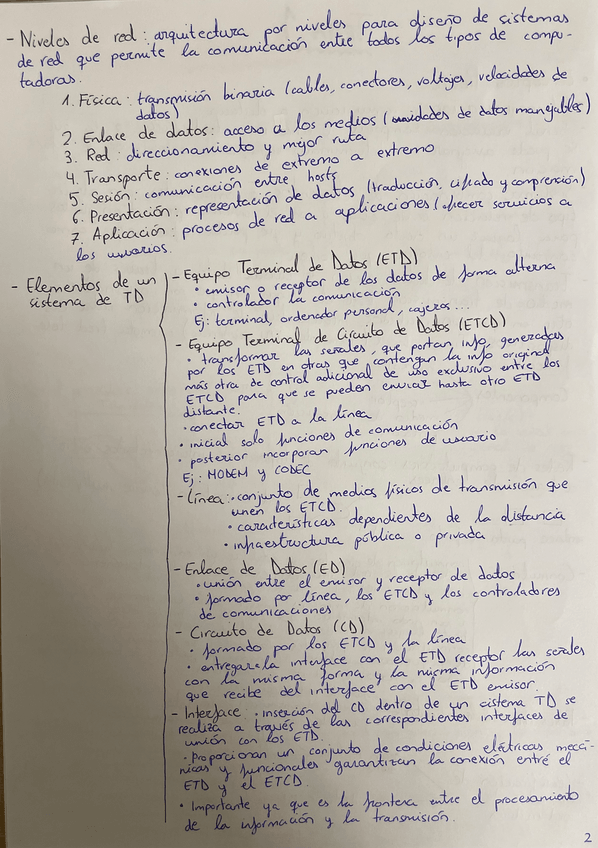 - Niveles de red : arquitectura por niveles para diseño de sistemas
de red que permite la comunicación entre todos los tipos de compu-
tadoras.
1. Física : transmisión binaria (cables, conectores, voltajes, velocidades de
datos)
2. Enlace de datos : acceso a los medios (unidades de datos manejables)
3. Red : direccionamiento y mejor ruta
4. Transporte : conexiones de extremo a extremo
5. Sesión : comunicación entre hosts
6. Presentación : representación de datos (traducción, cifrado y comprensión)
7. Aplicación : procesos de red a aplicaciones (ofrecer servicios a
los usuarios.
- Elementos de un
sistema de TD
- Equipo Terminal de Datos (ETD)
• emisor o receptor de los datos de forma alterna
• controlador la comunicación
Ej : terminal, ordenador personal, cajeros ...
- Equipo Terminal de Circuito de Datos (ETCD)
• transformar las señales, que portan info, generadas
por los ETD en otras que contengan la info original
más otra de control adicional de uso exclusivo entre los
ETCD para que se pueden enviar hasta otro ETD
distante.
• conectar ETD a la línea
• inicial solo funciones de comunicación
• posterior incorporan funciones de usuario
Ej : MODEM y CODEC
- Línea : • conjunto de medios físicos de transmisión que
unen los ETCD.
• características dependientes de la distancia
• infraestructura pública o privada
- Enlace de Datos (ED)
• unión entre el emisor y receptor de datos
• formado por línea, los ETCD y los controladores
de comunicaciones
- Circuito de Datos (CD)
• formado por los ETCD y la línea
• entregar a la interface con el ETD receptor las señales
con la misma forma y la misma información
que recibe del interface con el ETD emisor.
- Interface : • inserción del CD dentro de un sistema TD se
realiza a través de las correspondientes interfaces de
unión con los ETD.
• Proporcionan un conjunto de condiciones eléctricas mecá-
nicas y funcionales garantizan la conexión entre el
ETD y el ETCD.
• Importante ya que es la frontera entre el procesamiento
de la información y la transmisión.
2